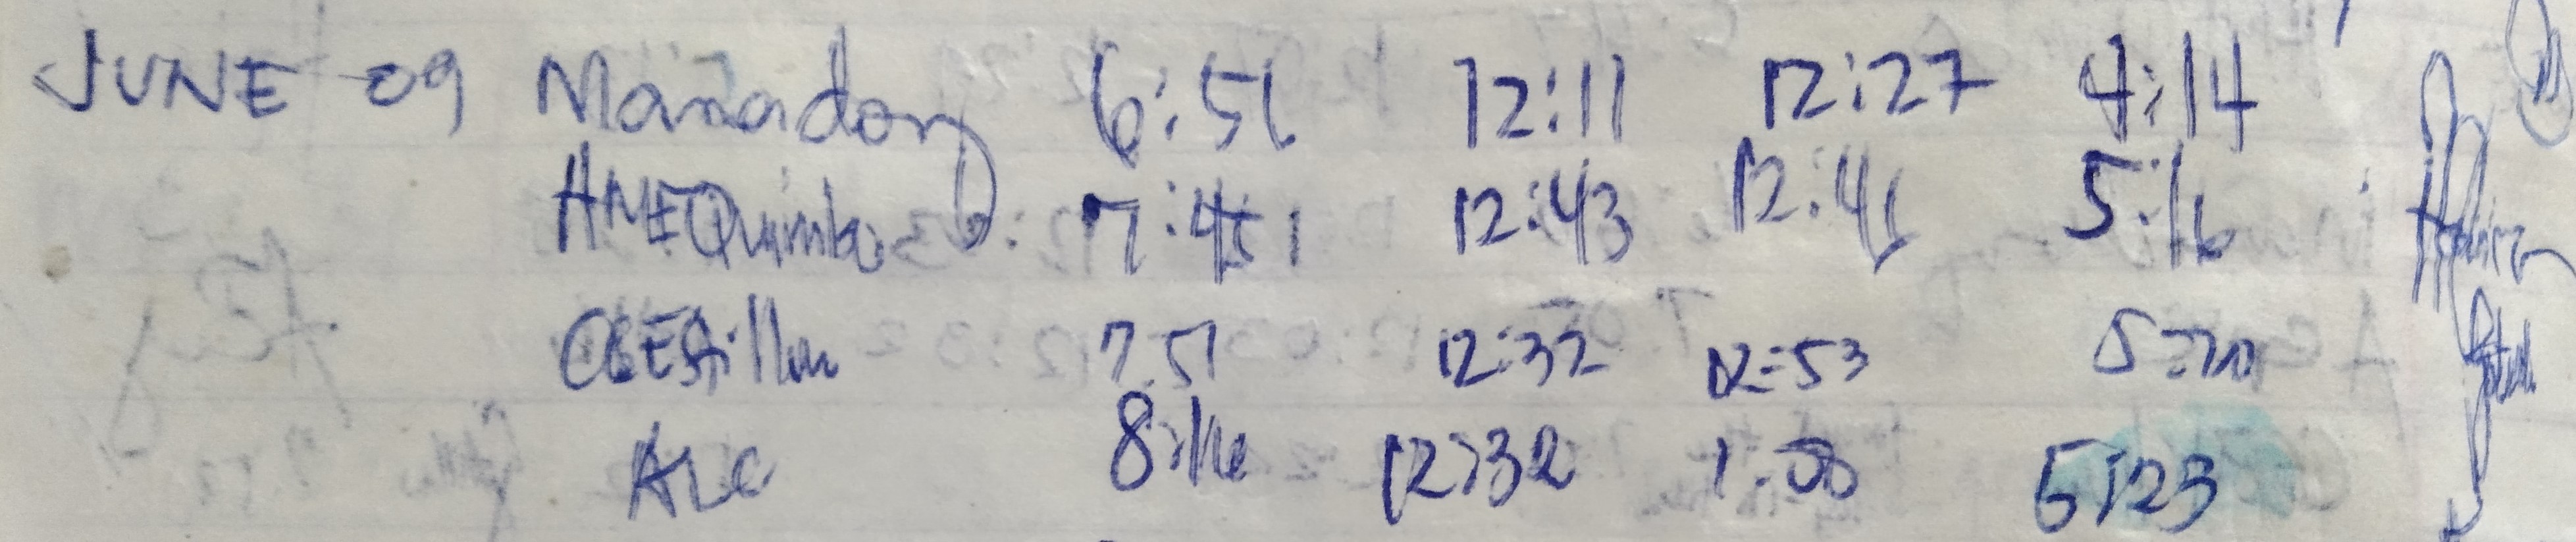 JUNE 09 Manadong 6:51 12:11 12:27 4:14
AMEQuimbo 7:45 12:43 12:46 5:16
CBEstillore 7:51 12:32 12:53 5:20
ALC 8:16 12:32 1:00 5:23